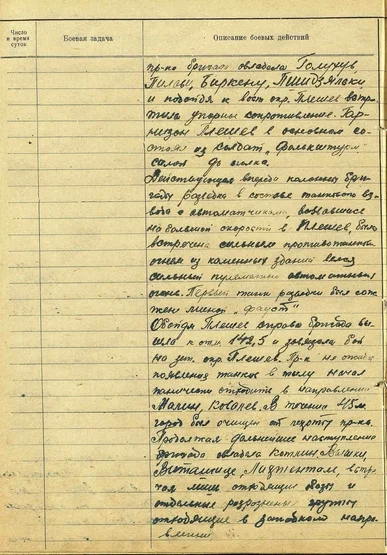 Число и время суток
Боевая задача
Описание боевых действий
пр-ка бригада овладела
Баркену,
и подойдя к вост. окр. Плешев встре-
тила упорное сопротивление. Гар-
низон Плешев в основном со-
стоял из солдат „фольксштурм"
силой до полка.
Действующая впереди колонны брига-
ды разведка в составе танкового вз-
вода с автоматчиками, ворвавшаяся
на большой скорости в Плешев, была
встречена сильным противотанковым
огнем из каменных зданий
сильный пулеметно автоматный
огонь. Первый танк разведки был сож-
жен миной „фауст"
Обойдя Плешев справа бригада вы-
шла к отм 142,5 и завязала бой
на зап. окр. Плешев. Пр-к не ожидая
появления танков в тылу начал
панически отходить в направлении
Ковалев. В течении 45 м.
город был очищен от пр-ка.
Продолжая дальнейшее наступление
бригада овладела Вышки,
встре-
чая лишь отходящие обозы и
отдельные разрозненные группы
отходящие в западном напра-
влении